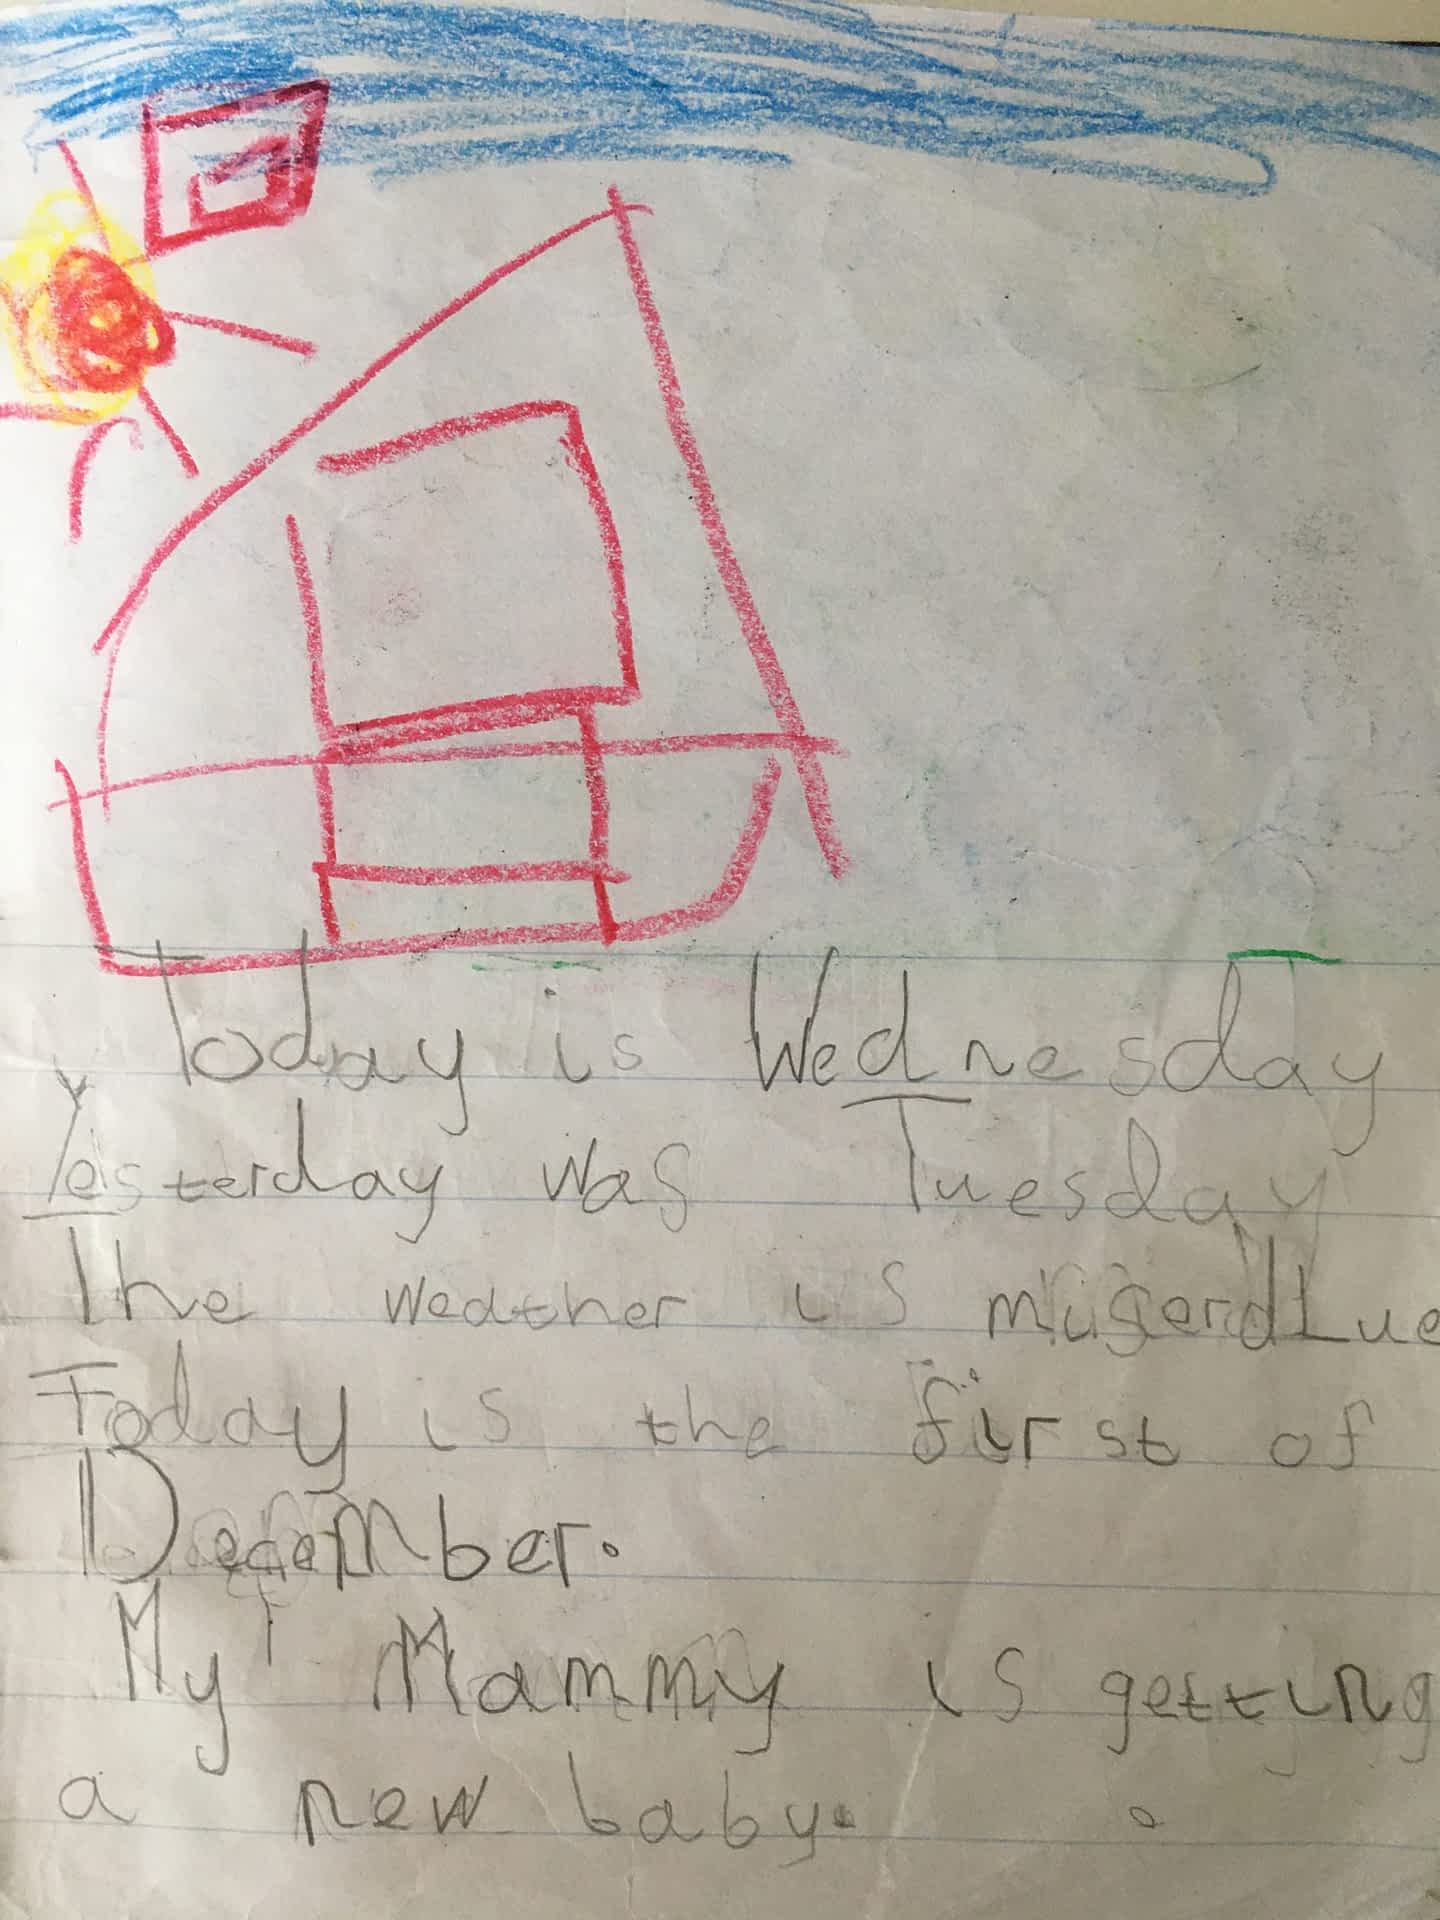 Today is Wednesday
Yesterday was Tuesday
The weather is
Today is the first of
December.
My Mammy is getting
a new baby.